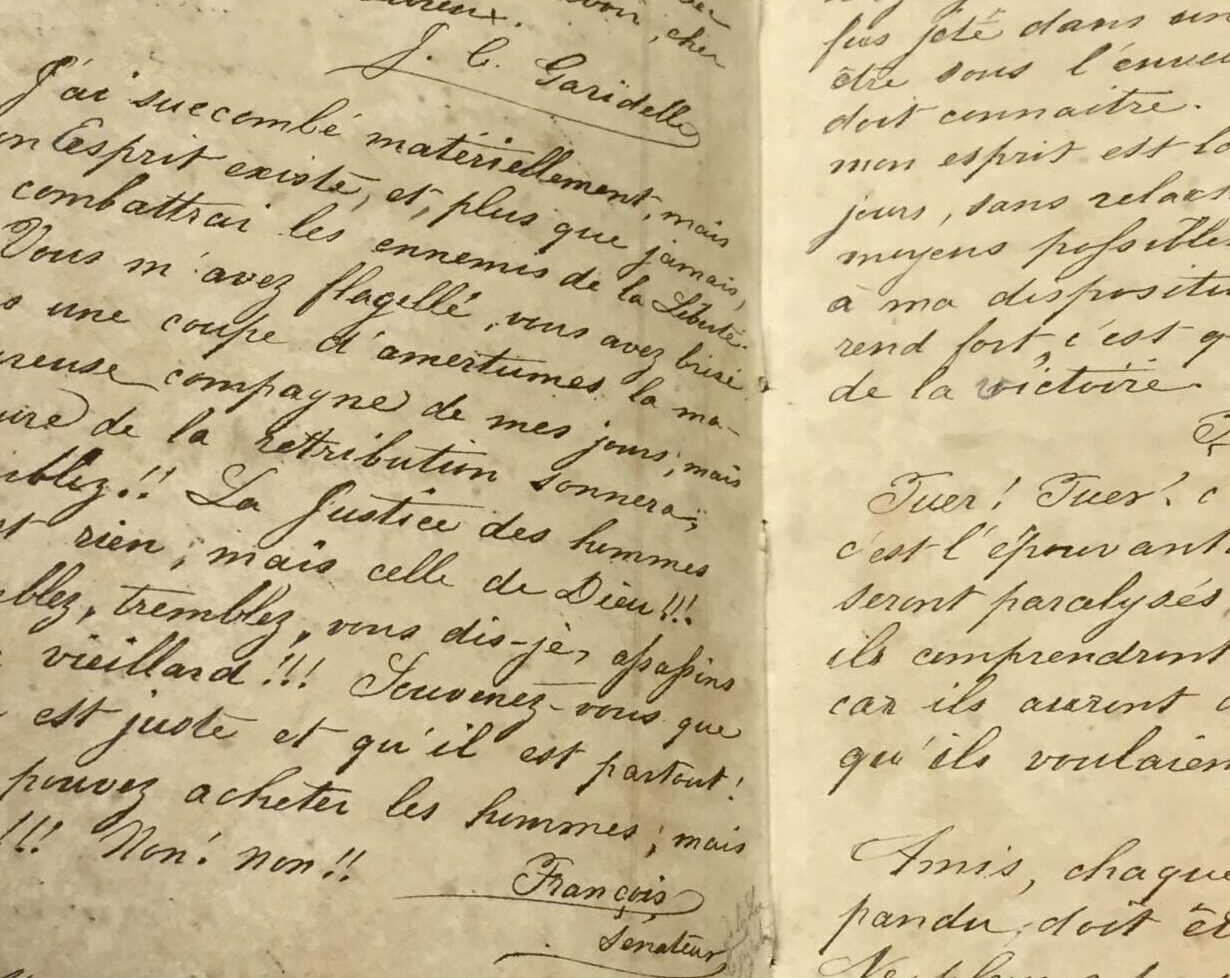 cher
J. C. Garidelle
J'ai succombé matériellement, mais
Esprit existe, et, plus que jamais,
combattrai les ennemis de la Liberté.
Vous m'avez flagellé, vous avez brisé
une coupe d'amertumes la ma-
reuse compagne de mes jours; mais
de la rettribution sonnera;
blez!! La Justice des hommes
rien; mais celle de Dieu!!!
blez, tremblez, vous dis-je, assassins
vieillard!!! Souvenez-vous que
est juste et qu'il est partout!
pouvez acheter les hommes; mais
!!! Non! non!!
François,
Sénateur,
fus jeté dans un
être sous l'
doit connaitre.
mon esprit est
jours, sans relac
moyens possible
à ma dispositi
rend fort, c'est q
de la victoire.
Tuer! Tuer! c
c'est l'épouvant
seront paralysés
ils comprendront
car ils auront
qu'ils voulaien
Amis, chaque
pandu, doit êt